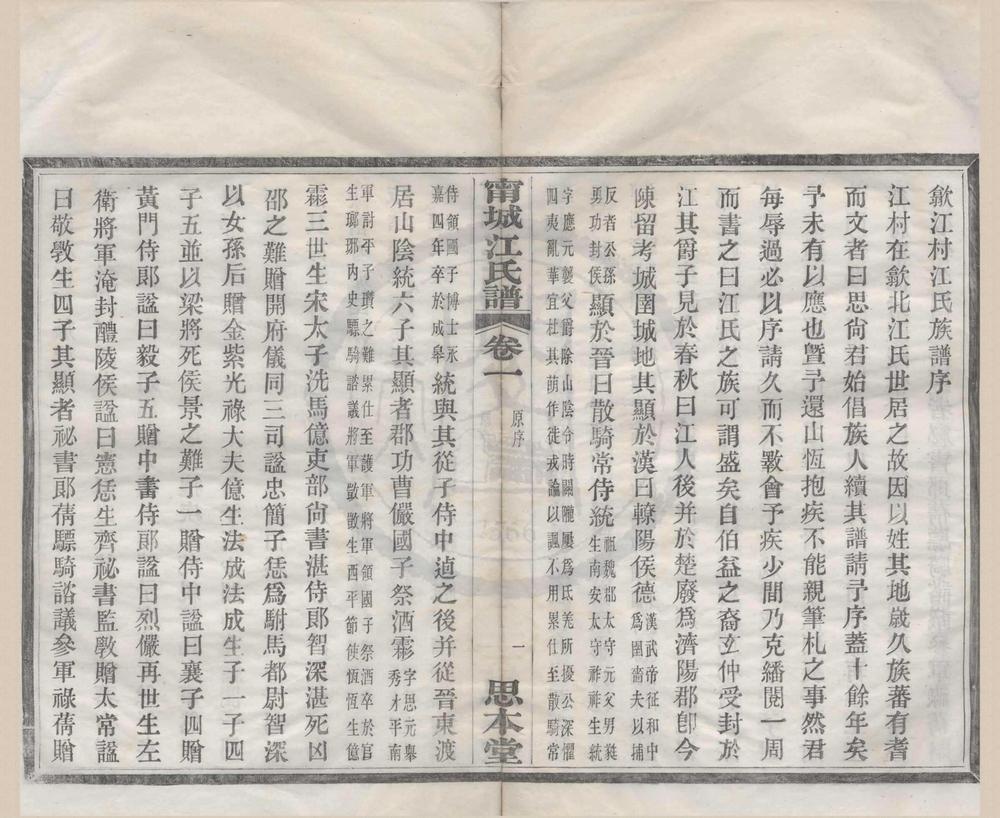 歙江村江氏族譜序
江村在歙北江氏世居之故因以姓其地歲久族蕃有耆
而文者曰思尙君始倡族人續其譜請予序蓋十餘年矣
予未有以應也曁予還山恆抱疾不能親筆札之事然君
每辱過必以序請久而不斁會予疾少間乃克繙閱一周
而書之曰江氏之族可謂盛矣自伯益之裔玄仲受封於
江其爵子見於春秋曰江人後并於楚廢爲濟陽郡卽今
陳留考城圉城地其顯於漢曰轑陽侯德
漢武帝征和中
爲圉嗇夫以捕
反者公孫
勇功封侯
顯於晉曰散騎常侍統
祖魏郡太守元父男蕤
生南安太守祚祚生統
字應元襲父爵除山陰令時關隴屢爲氐羌所擾公深懼
四夷亂華宜杜其萌作徙戎論以諷不用累仕至散騎常
甯城江氏譜
卷一
原序
一
思本堂
侍領國子博士永
嘉四年卒於成皋
統與其從子侍中逌之後并從晉東渡
居山陰統六子其顯者郡功曹儼國子祭酒霦
字思元舉
秀才平南
軍討平子瓚之難累仕至護軍將軍領國子祭酒卒於官
生瑯琊內史驃騎諮議將軍斅斅生西平節使恆恆生億
霦三世生宋太子洗馬億吏部尙書湛侍郞智深湛死凶
邵之難贈開府儀同三司諡忠簡子恁爲駙馬都尉智深
以女孫后贈金紫光祿大夫億生法成法成生子一子四
子五並以梁將死侯景之難子一贈侍中諡曰襄子四贈
黃門侍郞諡曰毅子五贈中書侍郞諡曰烈儼再世生左
衛將軍淹封醴陵侯諡曰憲恁生齊祕書監斆贈太常諡
曰敬斆生四子其顯者祕書郞蒨驃騎諮議參軍祿蒨贈